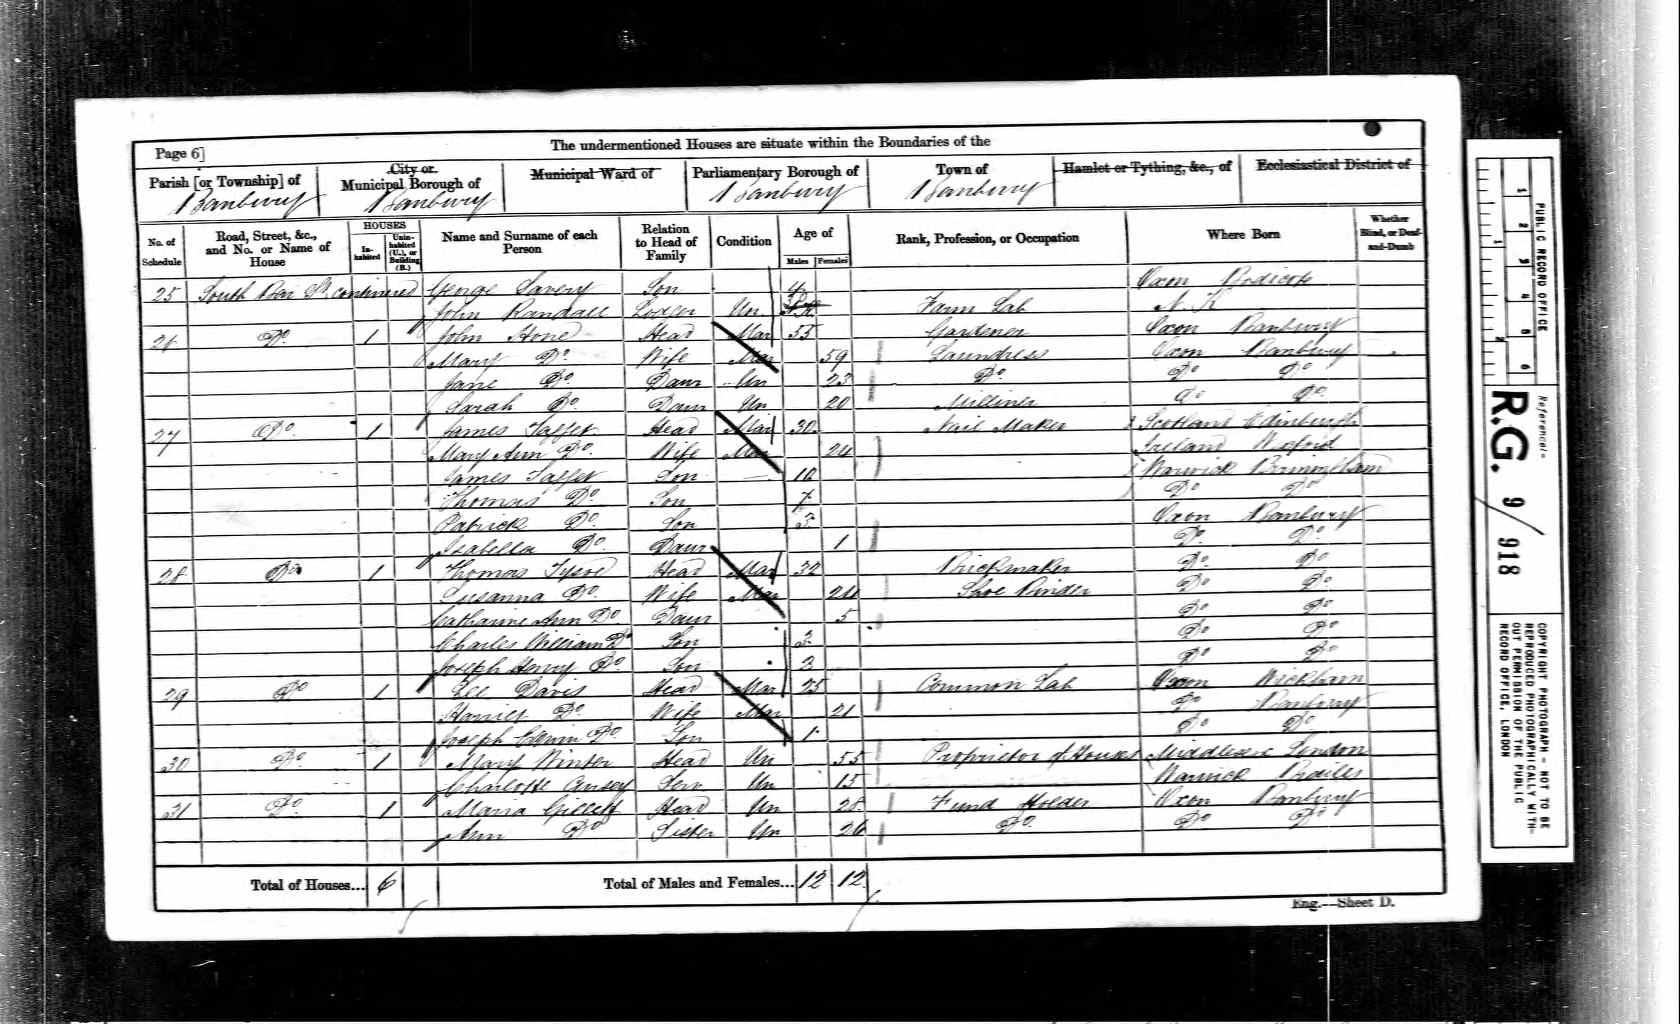 The undermentioned Houses are situate within the Boundaries of the
Page 6]
Parish [or Township] of Banbury
City or Municipal Borough of Banbury
Municipal Ward of
Parliamentary Borough of Banbury
Town of Banbury
Hamlet or Tything, &c., of
Ecclesiastical District of
No. of Schedule
Road, Street, &c., and No. or Name of House
HOUSES
In-habited
Unin-habited (U.), or Building (B.)
Name and Surname of each Person
Relation to Head of Family
Condition
Age of
Males Females
Rank, Profession, or Occupation
Where Born
Whether Blind, or Deaf-and-Dumb
25 South Bar St. continued George Savery Son 4 Oxon Bodicote
John Randall Lodger Un N.K. Farm Lab N. K
26 Do. 1 John Hone Head Mar 55 Gardener Oxon Banbury
Mary Do. Wife Mar 59 Laundress Oxon Banbury
Jane Do. Daur Un 23 Do. Do Do
Sarah Do. Daur Un 20 Milliner Do Do.
27 Do. 1 James Head Mar 30 Nail Maker Scotland Edinburgh
Mary Ann Do. Wife Mar 24 Ireland Wexford
James Son 10 Warwick Birmingham
Thomas Do. Son 7 Do Do
Patrick Do. Son 3 Oxon Banbury
Isabella Do. Daur 1 Do. Do.
28 Do 1 Thomas Tysoe Head Mar 32 Brickmaker Do. Do
Susanna Do. Wife Mar 24 Shoe Binder Do Do
Catharine Ann Do. Daur 5 Do Do
Charles William Do Son 3 Do Do
Joseph Henry Do. Son 2 Do Do
29 Do 1 Lee Davis Head Mar 25 Common Lab Oxon Wickham
Harriet Do. Wife Mar 21 Do Banbury
Joseph Edwin Do. Son 1 Do Do
30 Do. 1 Mary Winter Head Un 55 Proprietor of Houses Middlesex London
Charlotte Serv Un 15 Warwick Brailes
31 Do. 1 Maria Gillett Head Un 28 Fund Holder Oxon Banbury
Ann Do Sister Un 26 Do. Do Do
Total of Houses... 6
Total of Males and Females... 12 12
Eng.—Sheet D.
PUBLIC RECORD OFFICE
1 2 3 4 5 6
1 2
Reference:-
R.G. 9/918
COPYRIGHT PHOTOGRAPH - NOT TO BE
REPRODUCED PHOTOGRAPHICALLY WITH-
OUT PERMISSION OF THE PUBLIC
RECORD OFFICE, LONDON